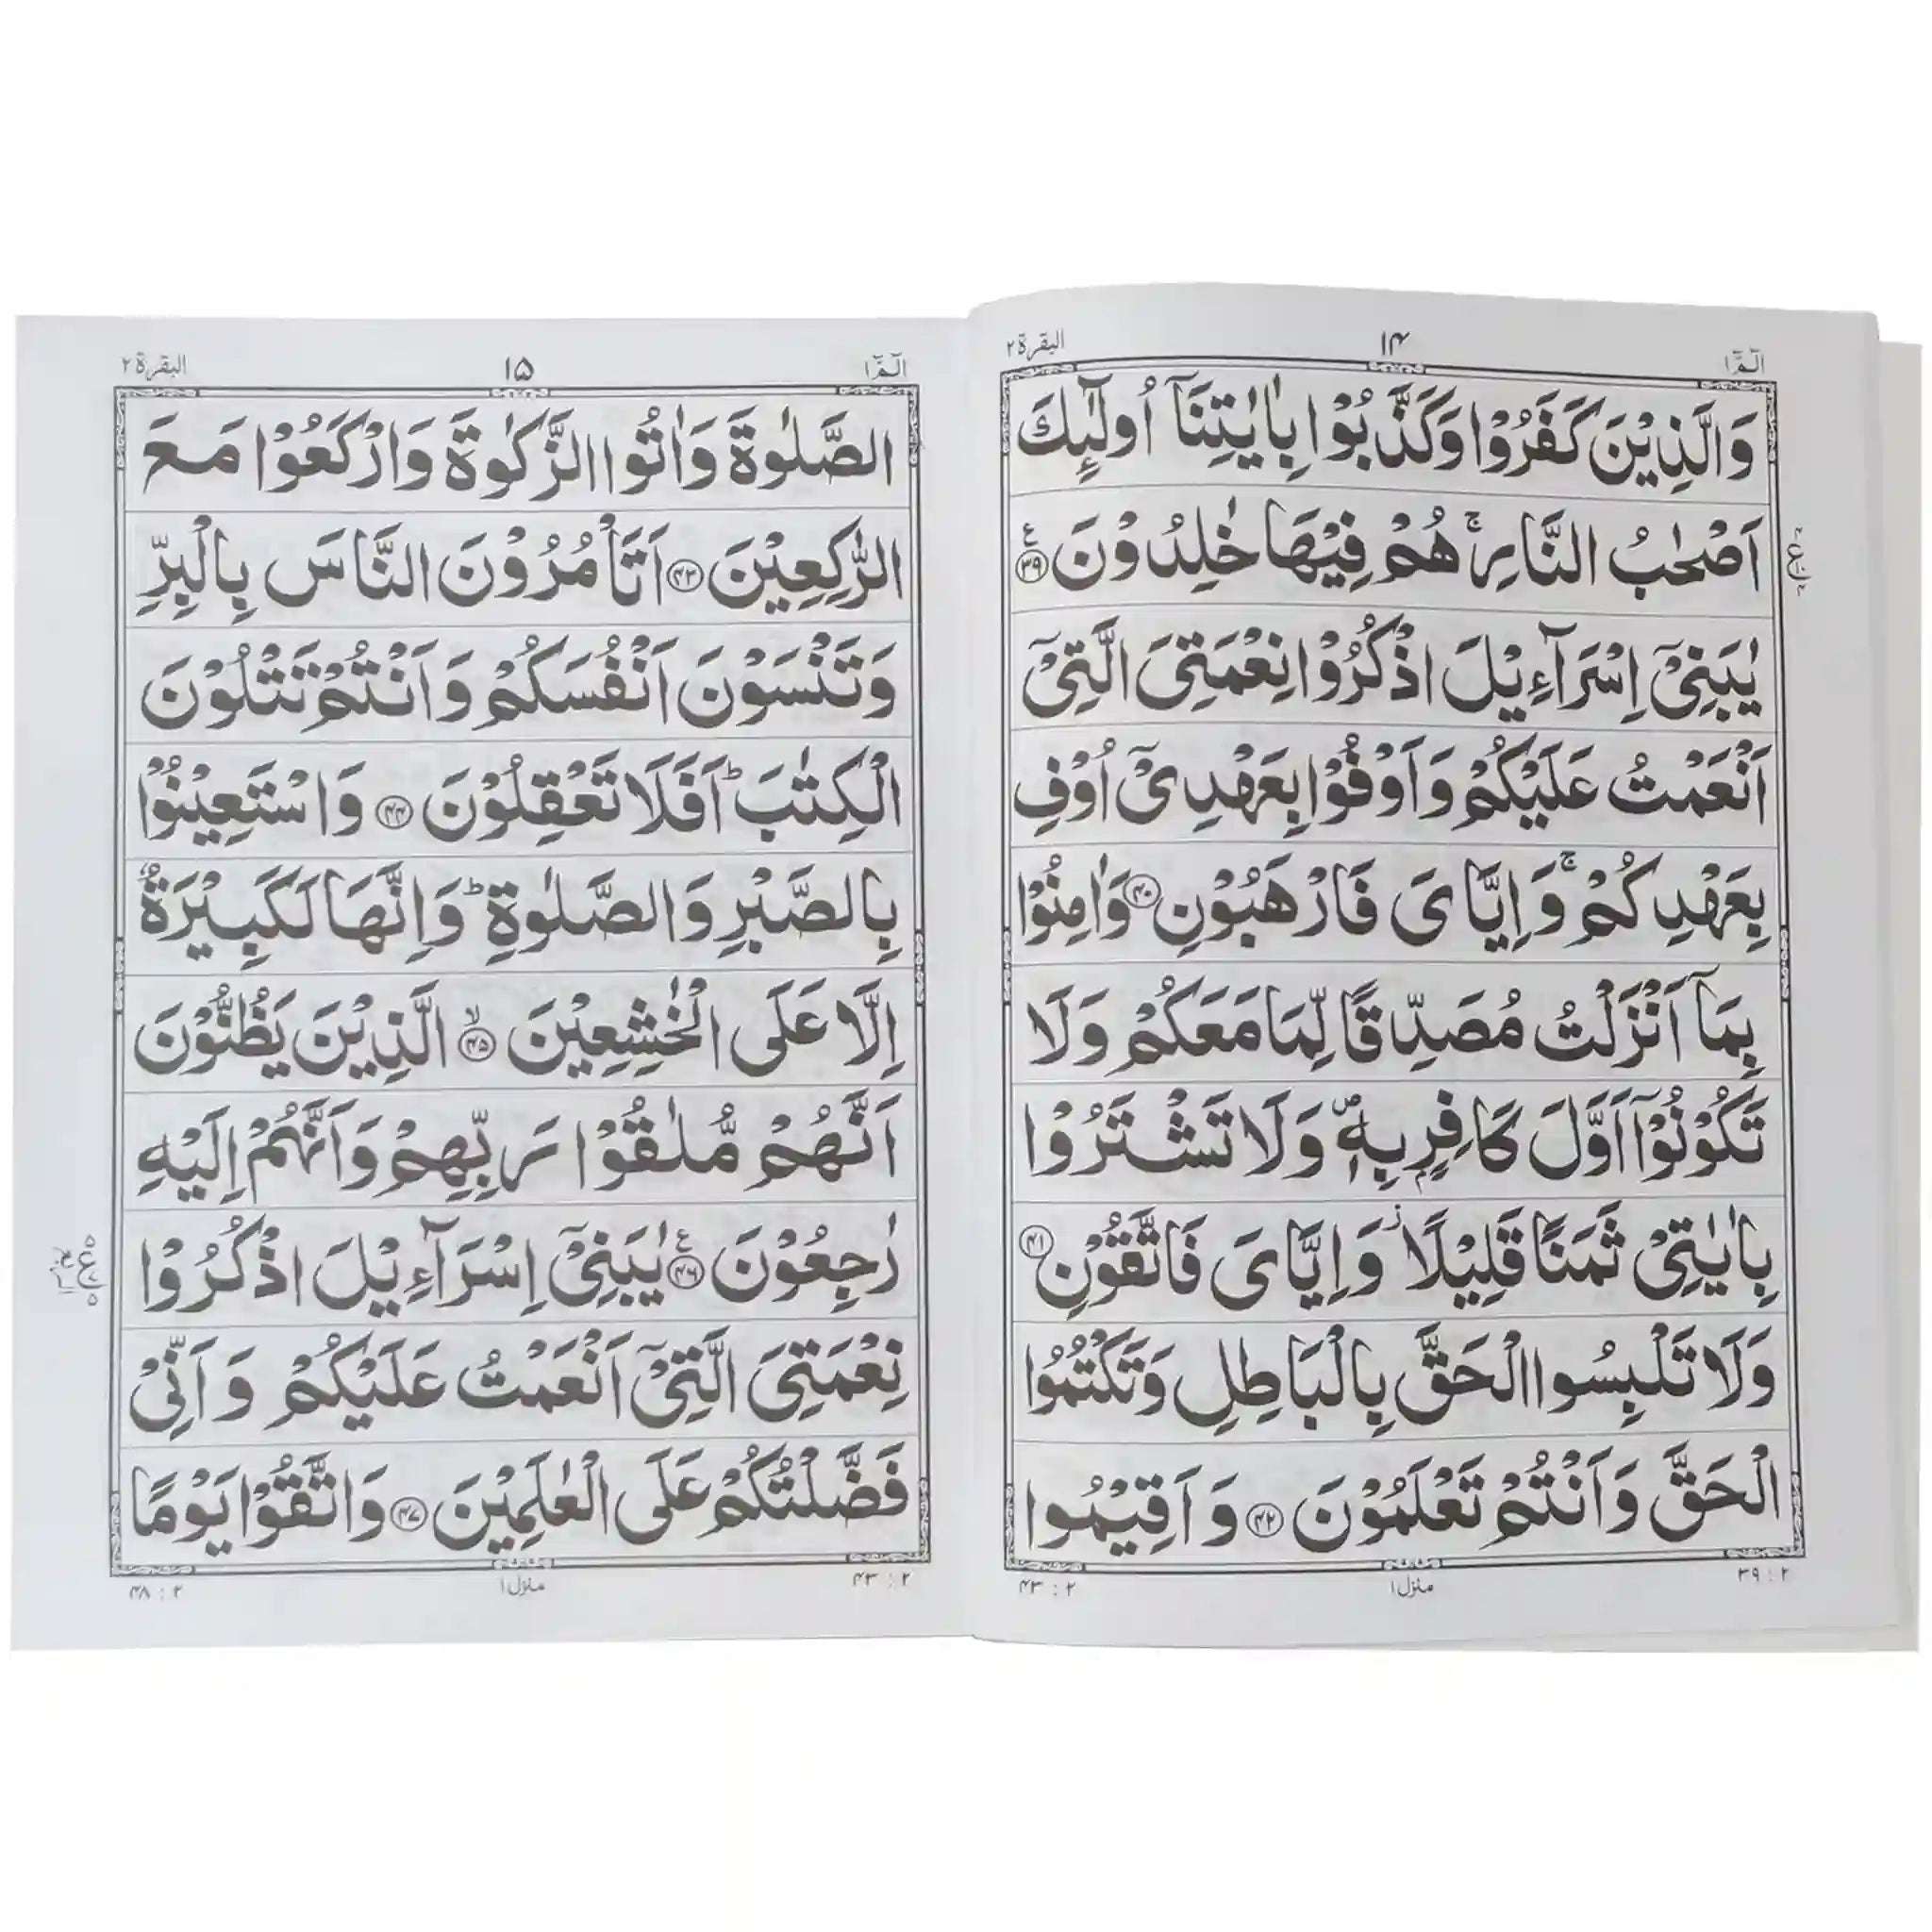 الٓمّٓ ۱
۱۴
البقرة ۲
وَالَّذِيْنَ كَفَرُوْا وَكَذَّبُوْا بِاٰيٰتِنَآ اُولٰٓئِكَ
اَصْحٰبُ النَّارِ ۚ هُمْ فِيْهَا خٰلِدُوْنَ ﴿۳۹﴾ ع
يٰبَنِيْٓ اِسْرَآءِيْلَ اذْكُرُوْا نِعْمَتِيَ الَّتِيْٓ
اَنْعَمْتُ عَلَيْكُمْ وَاَوْفُوْا بِعَهْدِيْٓ اُوْفِ
بِعَهْدِكُمْ ۚ وَاِيَّايَ فَارْهَبُوْنِ ﴿۴۰﴾ وَاٰمِنُوْا
بِمَآ اَنْزَلْتُ مُصَدِّقًا لِّمَا مَعَكُمْ وَلَا
تَكُوْنُوْٓا اَوَّلَ كَافِرٍۭ بِهٖ ۪ وَلَا تَشْتَرُوْا
بِاٰيٰتِيْ ثَمَنًا قَلِيْلًا ۡ وَاِيَّايَ فَاتَّقُوْنِ ﴿۴۱﴾
وَلَا تَلْبِسُوا الْحَقَّ بِالْبَاطِلِ وَتَكْتُمُوا
الْحَقَّ وَاَنْتُمْ تَعْلَمُوْنَ ﴿۴۲﴾ وَاَقِيْمُوا
۲ : ۳۹
منزل ۱
۲ : ۴۳
الٓمّٓ ۱
۱۵
البقرة ۲
الصَّلٰوةَ وَاٰتُوا الزَّكٰوةَ وَارْكَعُوْا مَعَ
الرّٰكِعِيْنَ ﴿۴۳﴾ اَتَاْمُرُوْنَ النَّاسَ بِالْبِرِّ
وَتَنْسَوْنَ اَنْفُسَكُمْ وَاَنْتُمْ تَتْلُوْنَ
الْكِتٰبَ ؕ اَفَلَا تَعْقِلُوْنَ ﴿۴۴﴾ وَاسْتَعِيْنُوْا
بِالصَّبْرِ وَالصَّلٰوةِ ؕ وَاِنَّهَا لَكَبِيْرَةٌ
اِلَّا عَلَى الْخٰشِعِيْنَ ۙ﴿۴۵﴾ الَّذِيْنَ يَظُنُّوْنَ
اَنَّهُمْ مُّلٰقُوْا رَبِّهِمْ وَاَنَّهُمْ اِلَيْهِ
رٰجِعُوْنَ ﴿۴۶﴾ ع يٰبَنِيْٓ اِسْرَآءِيْلَ اذْكُرُوْا
نِعْمَتِيَ الَّتِيْٓ اَنْعَمْتُ عَلَيْكُمْ وَاَنِّيْ
فَضَّلْتُكُمْ عَلَى الْعٰلَمِيْنَ ﴿۴۷﴾ وَاتَّقُوْا يَوْمًا
۲ : ۴۳
منزل ۱
۲ : ۴۸